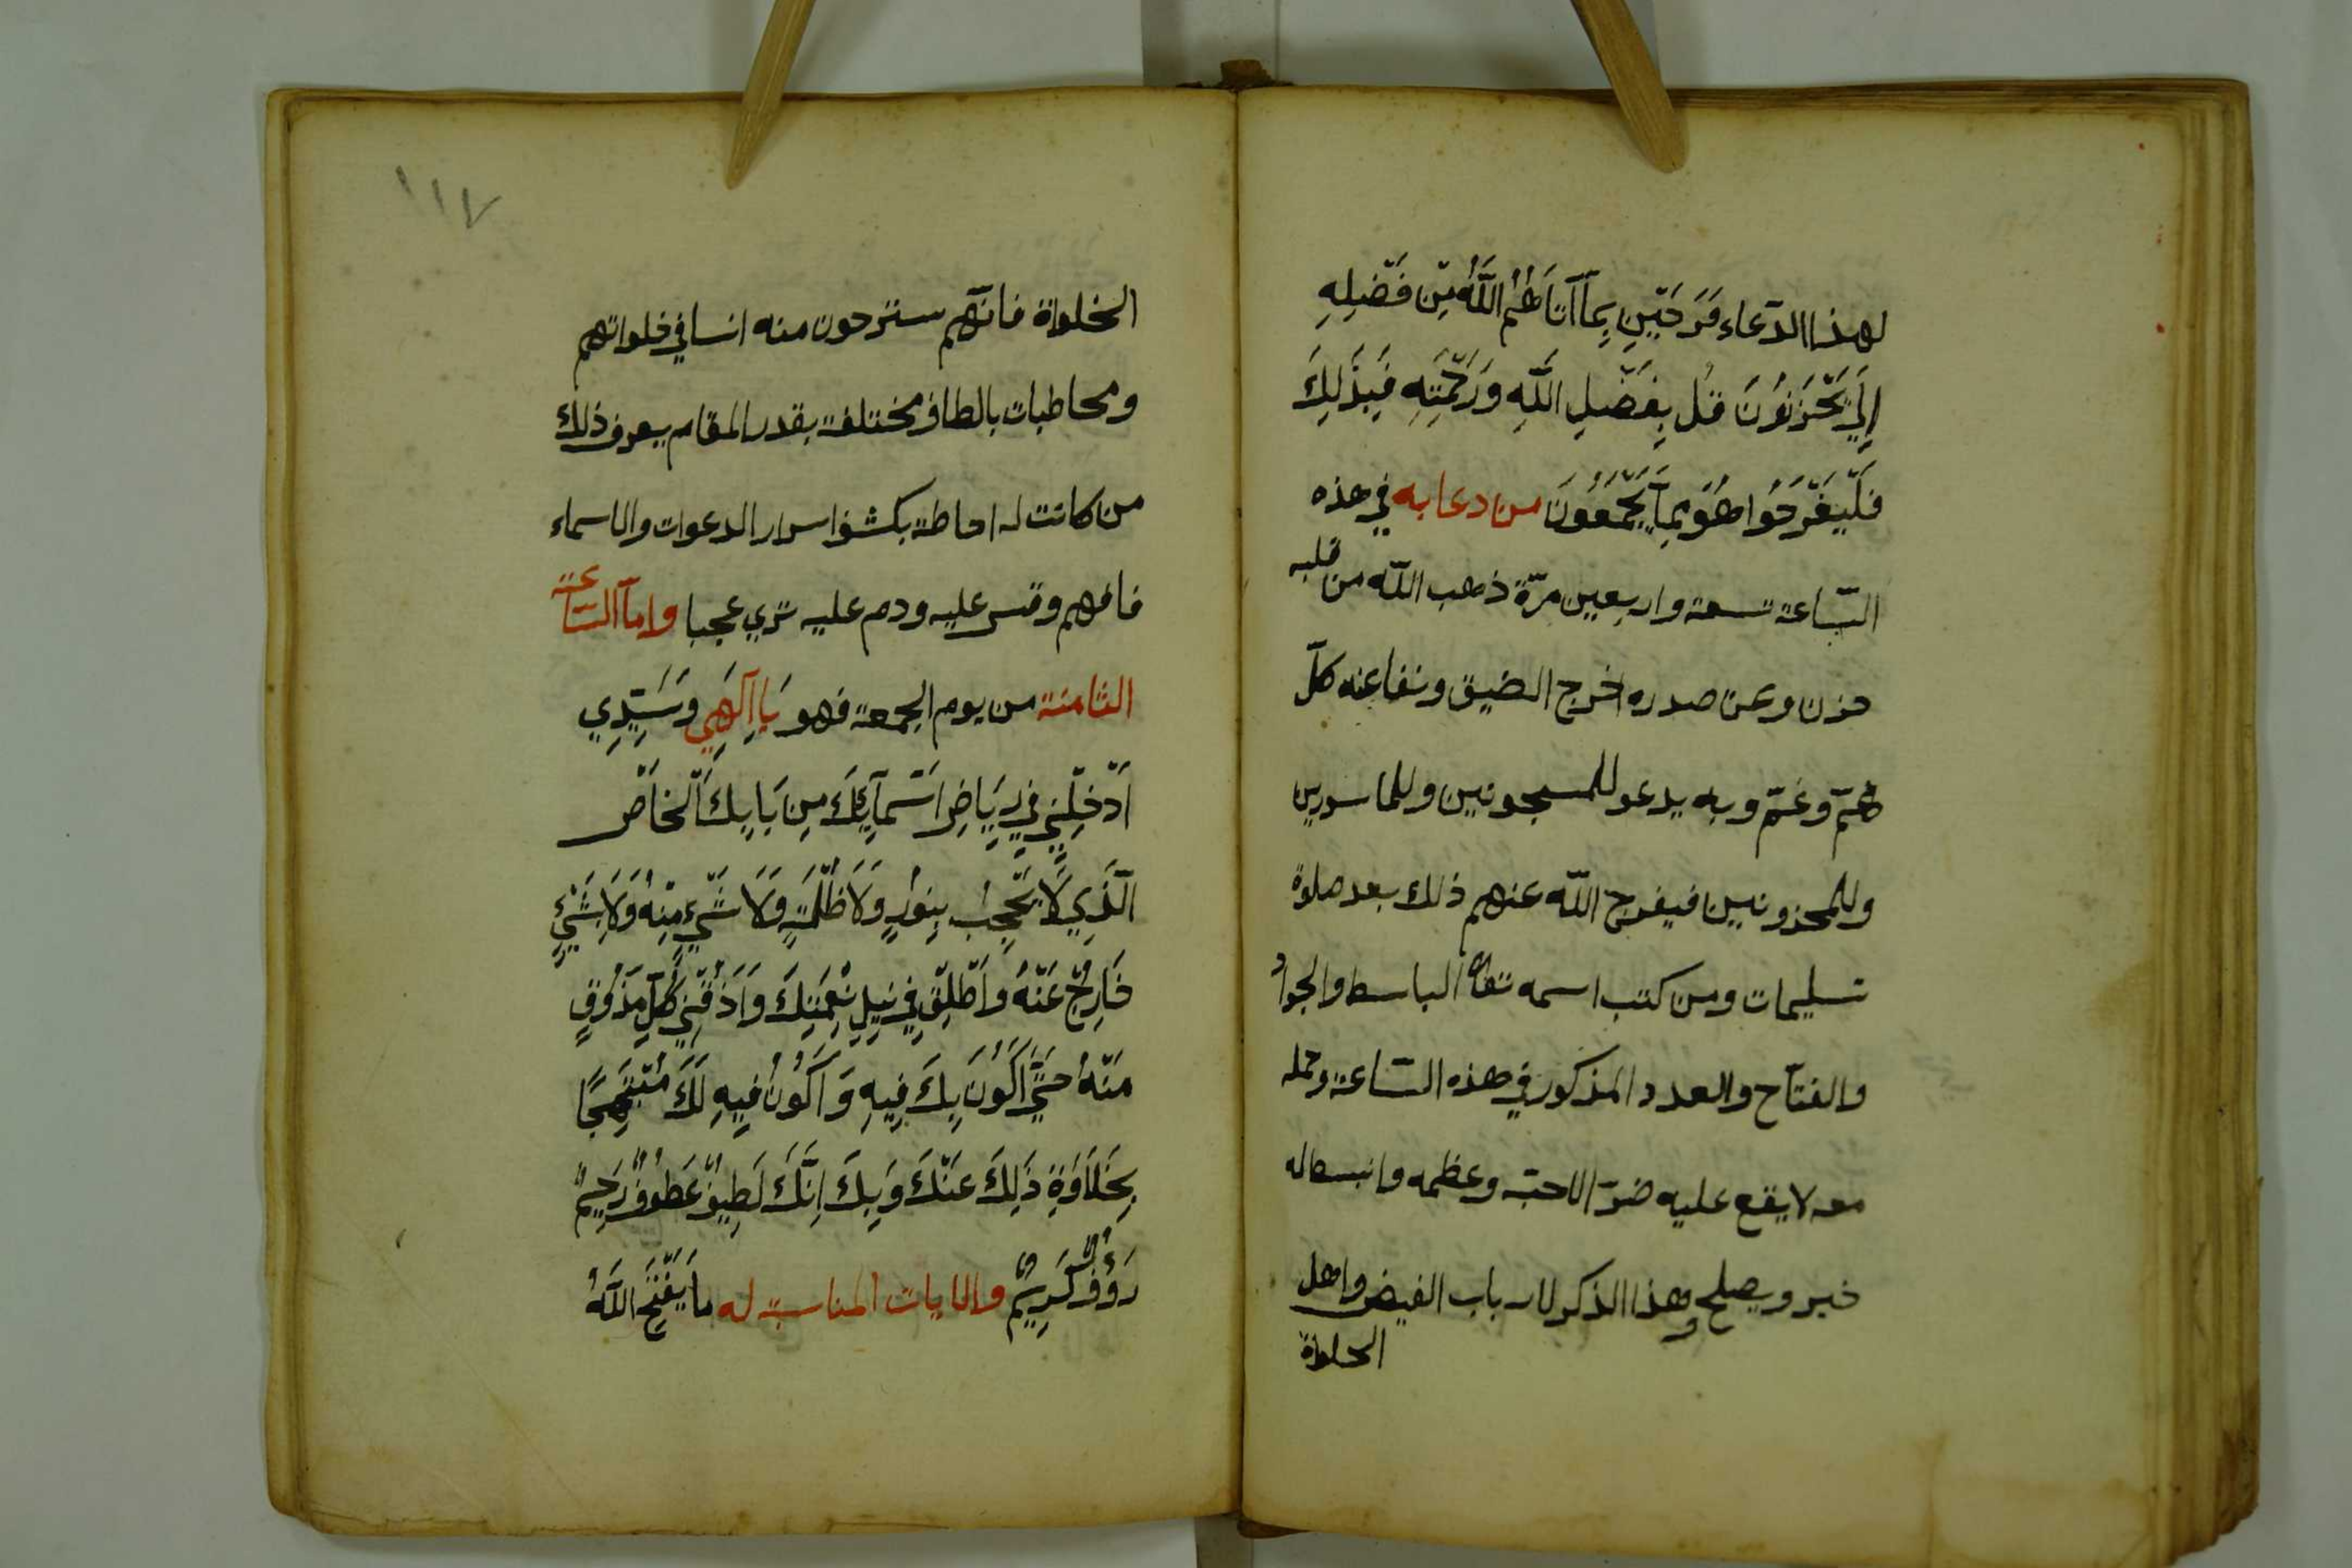 لهذا الدّعاء فَرَحَيّنِ بِمَآ آتَاهُمُ اللَّهُ مِّن فَضّلِهِ
إِلَي يَحّزَنُونَ قُل بِفَضّلِ اللَّهِ وَرَحّمَتِهِ فَبِذَلِكَ
فَلّيَفّرَحُوا هُوَ بِمآ يَجّمَعُونَ من دعا به في هذه
السّاعة تسعة واربعين مرّة ذهب اللّه من قلبه
حزن وعن صدره اخرج الضيق ونفا عنه كلّ
همّ وغمّ وبه يدعو للمسجونين وللماسورين
وللمحزونين فيفرج اللّه عنهم ذلك بعد صلوة
تسليمات ومن كتب اسمه تعالى الباسط والجواد
والفتّاح والعدد المذكور في هذه السّاعة وحمله
معه لا يقع عليه ضرّ الا حبّه وعظمه وانبسط له
خير ويصلح وهذا الذكر لارباب الفيض واهل
الخلوة
١١٧
الخلوة فانّهم ستزحون منه انسا في خلواتهم
ومخاطبات بالطاف مختلفة بقدر المقام يعرف ذلك
من كانت له احاطة بكشف اسرار الدعوات والاسماء
فافهم وقس عليه ودم عليه تري عجبا وامّا السّاعة
الثامنة من يوم الجمعة فهو يَا اِلَهِي وَسَيِّدِي
اَدّخِلّنِي فِي رِيَاضِ اَسّمَآئِكَ مِن بَابِكَ اَلّخَاصّ
الَّذِي لَا يَحّجِبُ بِنُورٍ وَلَا ظُلّمَةٍ وَلَا شَيّءٍ مِنّهُ وَلَا شَيْءٍ
خَارِجٌ عَنّهُ وَاَطّلِقّ فِي نَيِلِ نِعّمَتِكَ وَاَذِقّنِي كُلِّ مَذُوقٍ
مَنّهُ حَتَّي اَكُونَ بِكَ فِيهِ وَاَكُونُ فِيهِ لَكَ مُبّتَهِجًا
بِحَلَاوَةِ ذَلِكَ عَنّكَ وَبِكَ اِنَّكَ لَطِيفٌ عَطُوفٌ رَحِيمٌ
رَؤُفٌ كَرِيمٌ والايات المناسبة له مَا يَفّتَحِ اللَّهُ